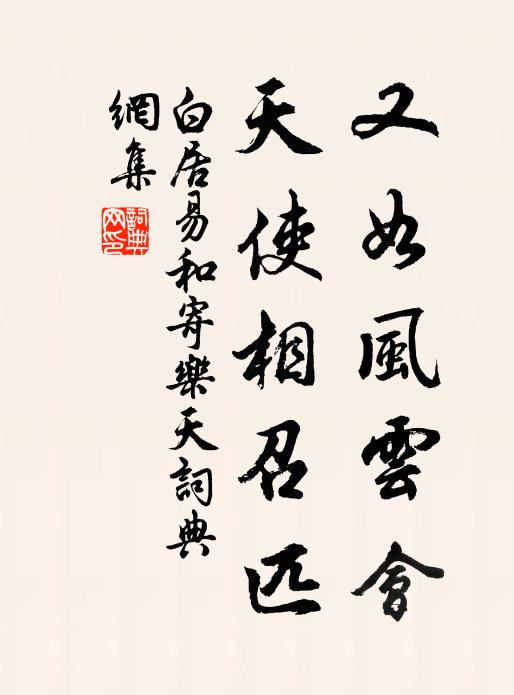 又如風雲會
天使相召匹
白居易和寄樂天詞典
網集
詞典网印